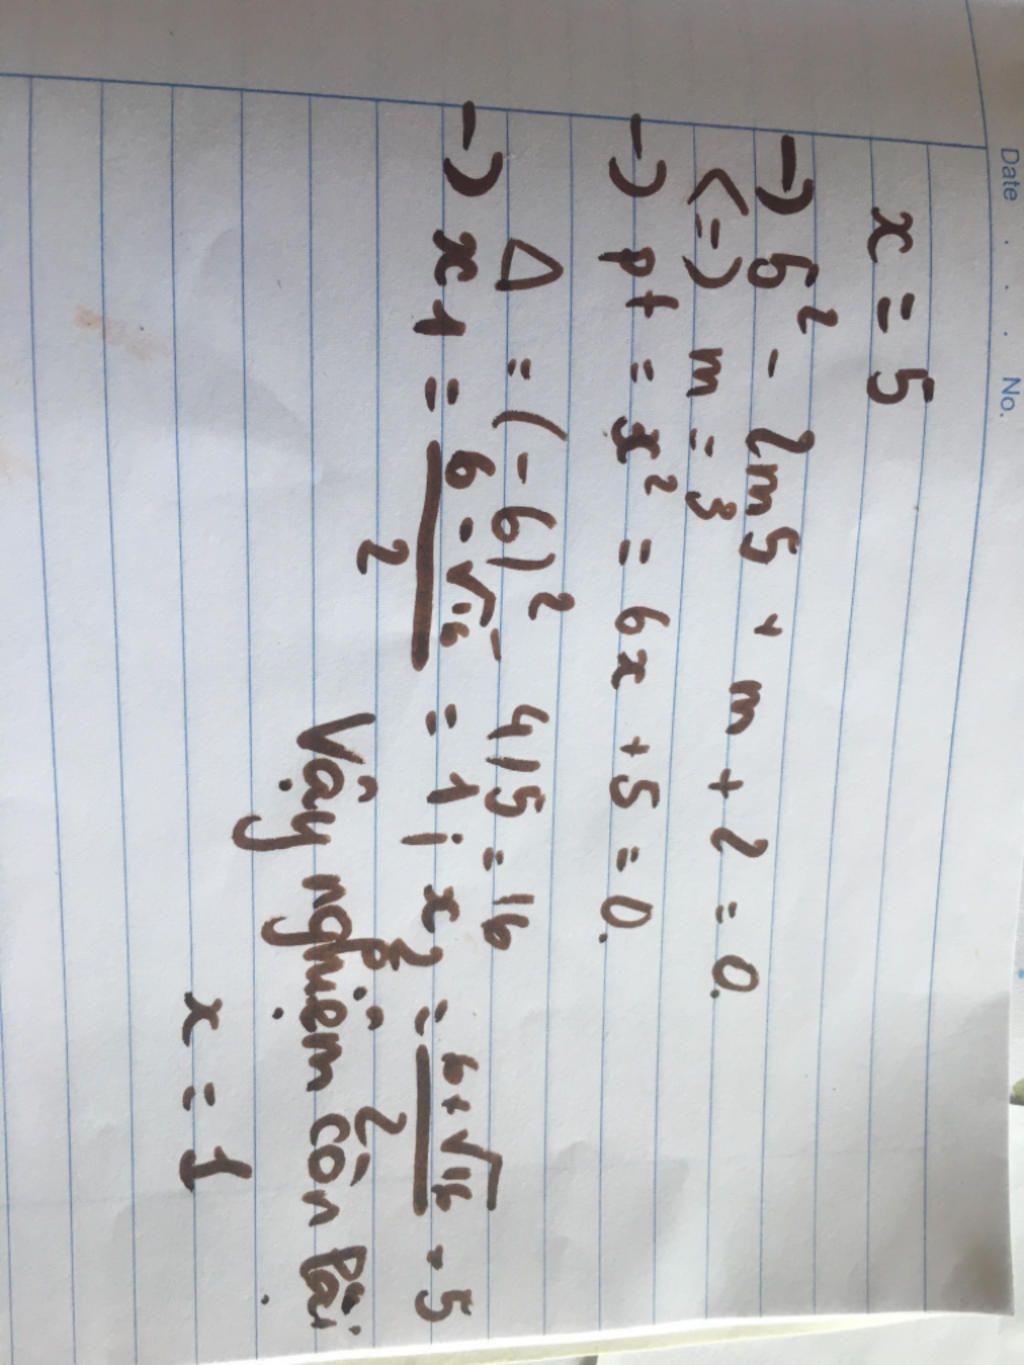 Date . . . No.
x = 5
→ 5² - 2m5 + m + 2 = 0.
(=) m = 3
→ pt = x² = 6x + 5 = 0.
Δ = (-6)² - 4.1.5 = 16
→ x1 = 6 - √16 / 2 = 1 ; x2 = 6 + √16 / 2 = 5
Vậy nghiệm còn lại
x = 1